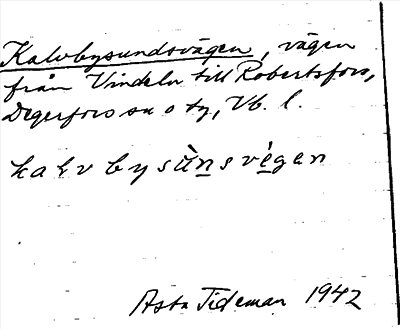 Kalvbysundsvägen, vägen
från Vindeln till Robertsfors,
Degerfors sn o ty, Vb. l.
kalvbysùnsvégen
Asta Tideman 1942